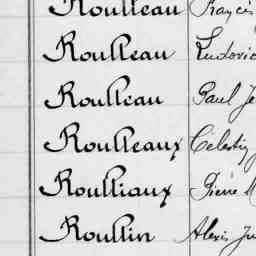 Roulleau Francis
Roulleau Ludovic
Roulleau Paul Je
Roulleaux Célestin
Roulliaux Pierre M
Roullin Alexis Ju